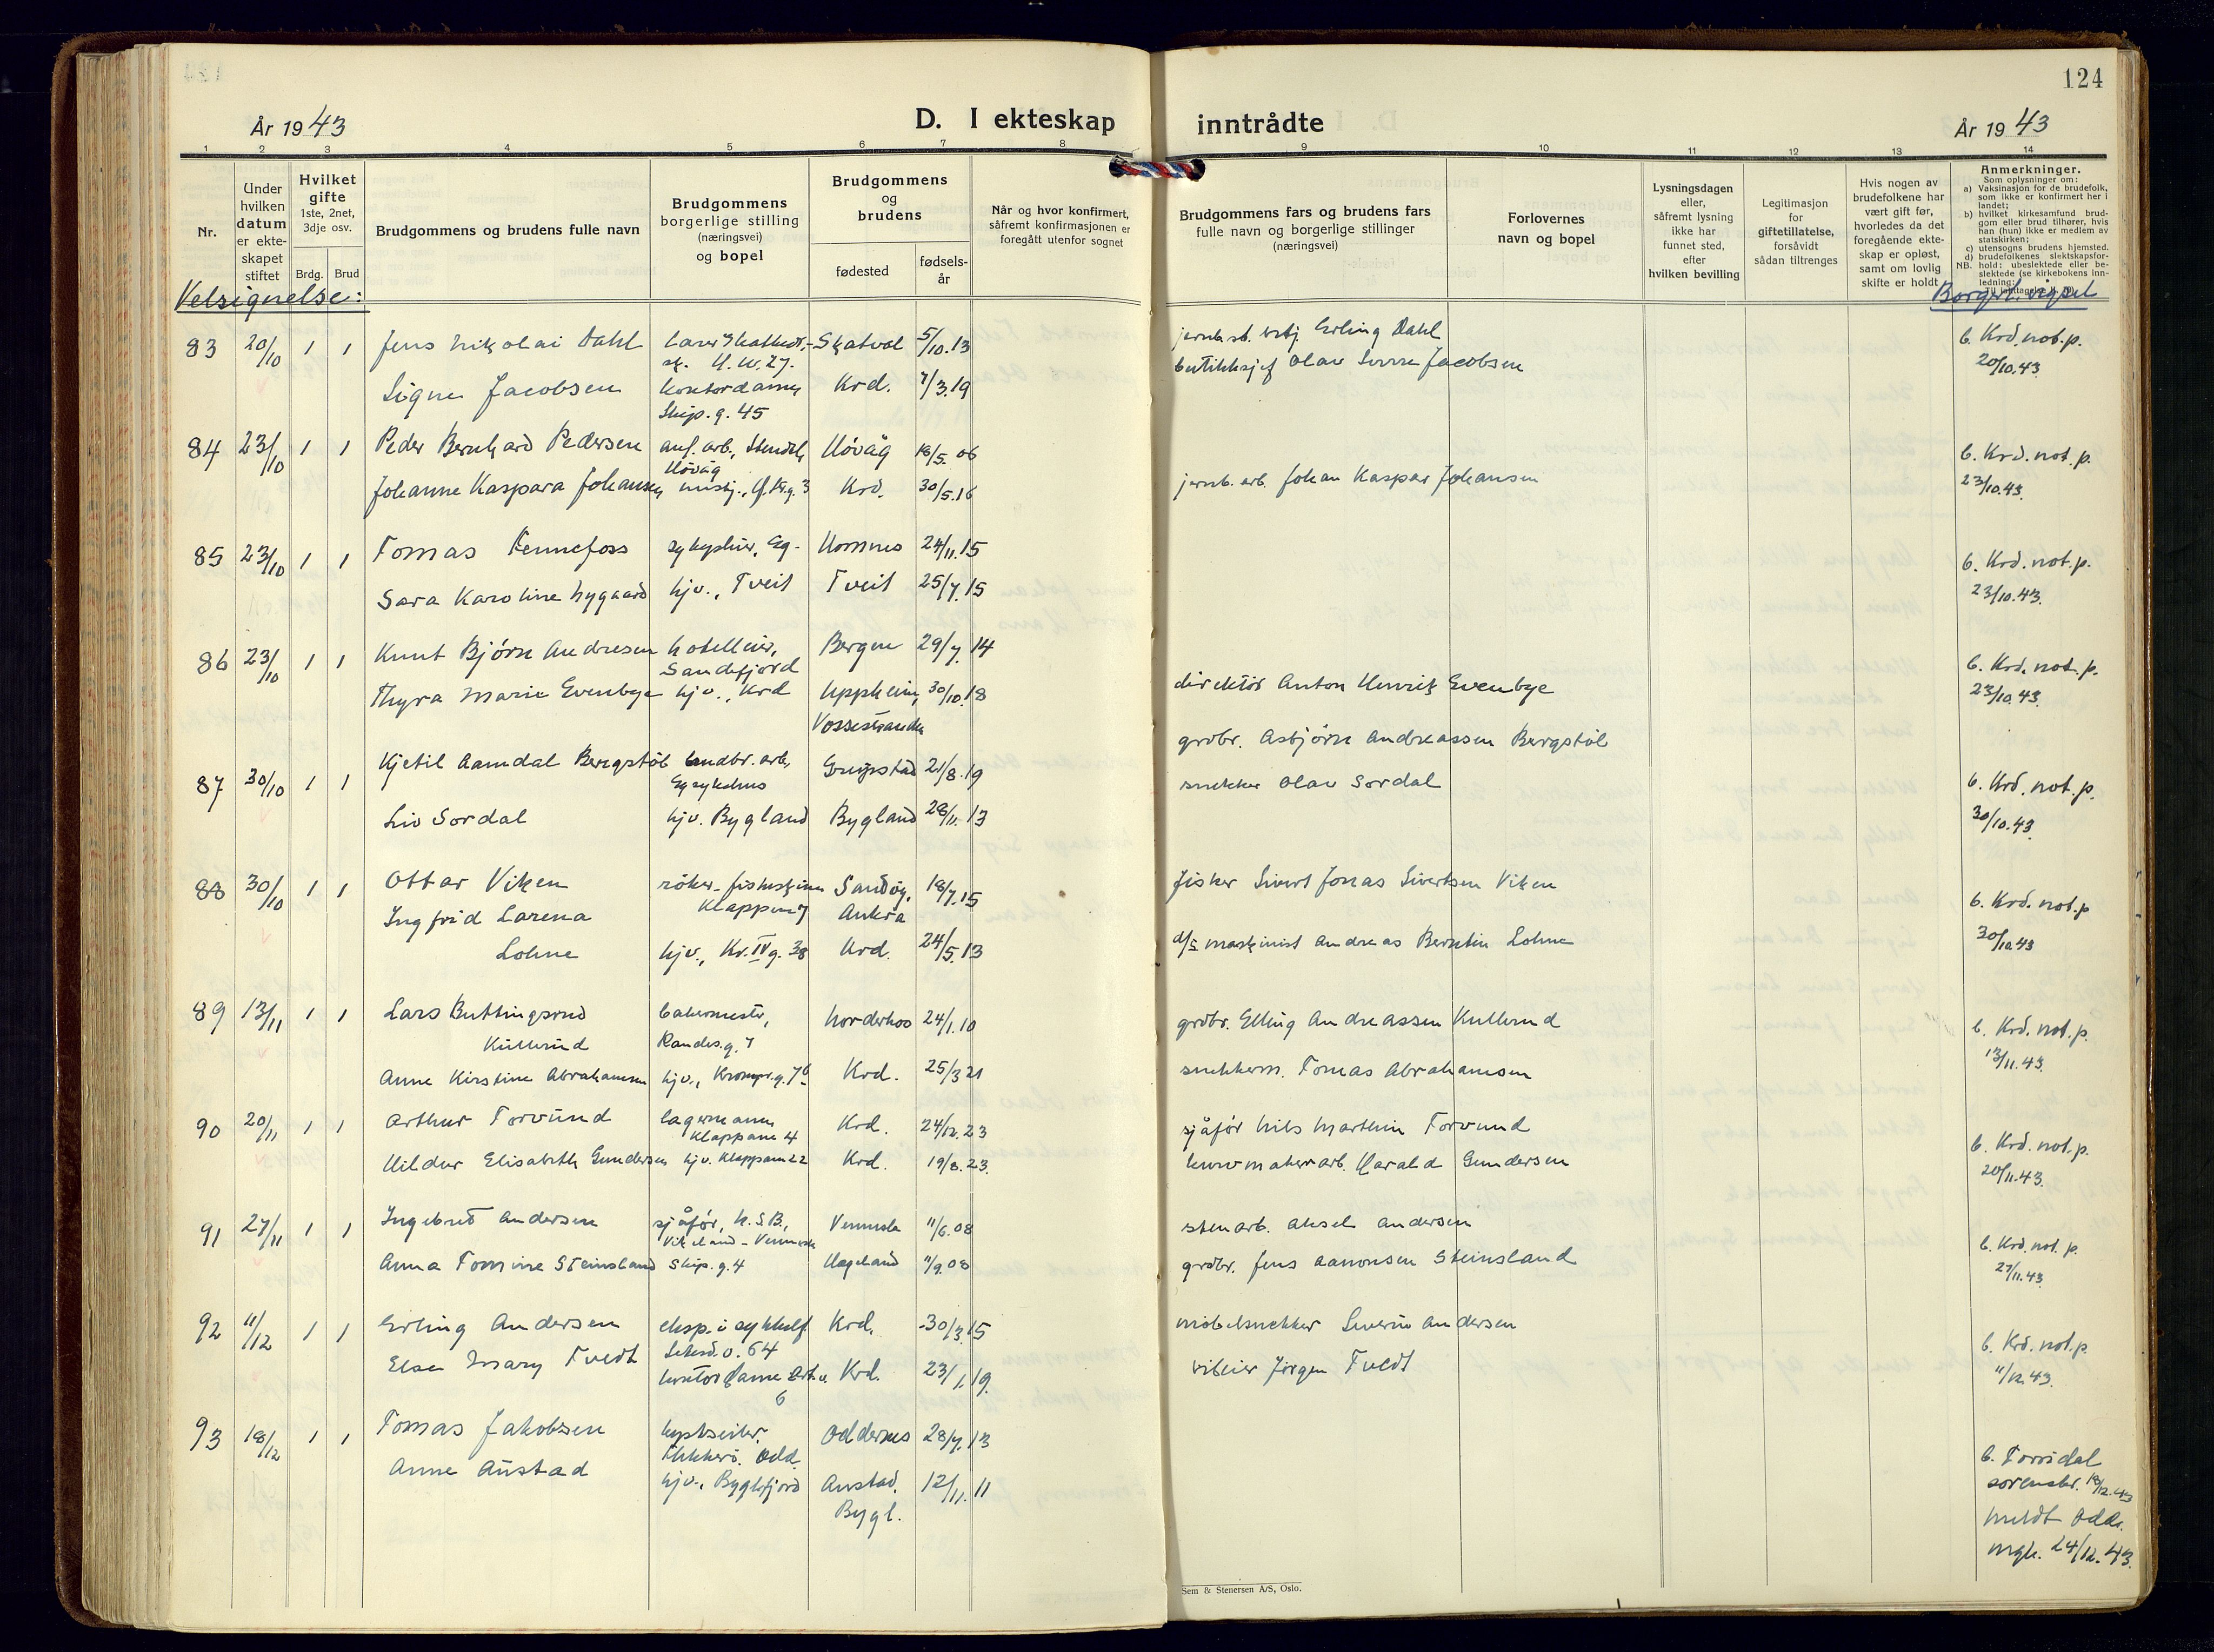 124
År 1943
D. I ekteskap inntrådte
År 1943
1 2 3 4 5 6 7 8 9 10 11 12 13 14
Nr.
Under hvilken datum er ekteskapet stiftet
Hvilket gifte
1ste, 2net, 3dje osv.
Brdg. Brud
Brudgommens og brudens fulle navn
Brudgommens borgerlige stilling (næringsvei) og bopel
Brudgommens og brudens
fødested
fødsels-år
Når og hvor konfirmert, såfremt konfirmasjonen er foregått utenfor sognet
Brudgommens fars og brudens fars fulle navn og borgerlige stillinger (næringsvei)
Forlovernes navn og bopel
Lysningsdagen eller, såfremt lysning ikke har funnet sted, efter hvilken bevilling
Legitimasjon for giftetillatelse, forsåvidt sådan tiltrenges
Hvis nogen av brudefolkene har vært gift før, hvorledes da det foregående ekteskap er opløst, samt om lovlig skifte er holdt
Anmerkninger.
Som oplysninger om:
a) Vaksinasjon for de brudefolk, som ikke er konfirmert her i landet;
b) hvilket kirkesamfund brudgom eller brud tilhører, hvis han (hun) ikke er medlem av statskirken;
c) utensogns brudens hjemsted.
d) brudefolkenes slektskapsforhold: ubeslektede eller beslektede (se kirkebokens innledning:
NB.
Velsignelse:
Borgerl. vigsel
83 20/10 1 1 Jens Nikolai Dahl Skatval 5/10.13 Erling Dahl b. Krd. not. p.
20/10.43.
Signe Jacobsen kontordame Krd. 7/3.19 butikksjef Olav Sverre Jacobsen
Skip. g. 45
84 23/10 1 1 Peder Bernhard Pedersen Høvåg 18/5.06 b. Krd. not. p.
Høvåg
Johanne Kaspara Johansen Krd. 30/5.16 jernb. arb. Johan Kaspar Johansen 23/10.43.
85 23/10 1 1 Tomas Fennefoss Eg. Hornnes 24/11.15 b. Krd. not. p.
Sara Karoline Nygaard hjv., Tveit Tveit 25/7.15 23/10.43.
86 23/10 1 1 Knut Bjørn Andresen hotelleier, Bergen 29/7.14 b. Krd. not. p.
Sandefjord
Thyra Marie Evenbye hjv., Krd Uppheim, 30/10.18 direktør Anton Henrik Evenbye 23/10.43.
Vossestranden
87 30/10 1 1 Kjetil Aamdal Bergstøl landbr. arb. Greipstad 21/8.19 grdbr. Asbjørn Andreassen Bergstøl b. Krd. not. p.
Eg sykehus
Liv Sordal hjv. Bygland Bygland 28/11.13 snekker Olav Sordal 30/10.43.
88 30/10 1 1 Ottar Viken Sandøy, 18/7.15 fisker Sivert Jonas Sivertsen Viken b. Krd. not. p
Klappane 7 Aukra
Ingfrid Larena
Lohne hjv., Kr. IV g. 38 Krd. 24/5.13 d/s maskinist Andreas Berntin Lohne 30/10.43
89 13/11 1 1 Lars Buttingsrud bakermester, Norderhov 24/1.10 grdbr. Elling Andreassen Kullerud b. Krd. not. p.
Kullerud Randes. g. 7
Anne Kirstine Abrahamsen hjv., Kronpr. g. 76 Krd. 25/3 21 snekkerm. Tomas Abrahamsen 13/11.43.
90 20/11 1 1 Arthur Torvund lagermann Krd. 24/12.23 sjåfør Nils Marthin Torvund b. Krd. not. p.
Klappane 4
Hildur Elisabeth Gundersen hjv. Klappane 22 Krd. 19/8.23. kurvmakerarb. Harald Gundersen 20/11.43.
91 27/11 1 1 Ingebret Andersen sjåfør, N.S.B., Vennesla 11/6.08 stenarb. Aksel Andersen b. Krd. not. p.
Vikeland - Vennesla
Anna Tomine Steinsland Skip. g. 4 Hægeland 11/9.08 grdbr. Jens Aanonsen Steinsland 27/11.43.
92 11/12 1 1 Erling Andersen Krd. 30/3.15 møbelsnekker Severin Andersen b. Krd. not. p
Else Mary Tvedt kontordame Krd. 23/1.19. Jørgen Tvedt 11/12.43.
6
93 18/12 1 1 Tomas Jakobsen Oddernes 28/7.13 b. Torridal
Odd.
Anne Austad hjv., Byglefjord Austad, 12/11.11 sorenskr. 18/12.43
Bygl. meldt Odd.
24/12.43.
Sem & Stenersen A/S, Oslo.